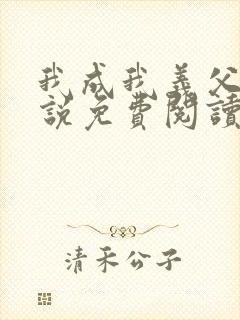 我成我義父
說免費閱讀
清禾公子